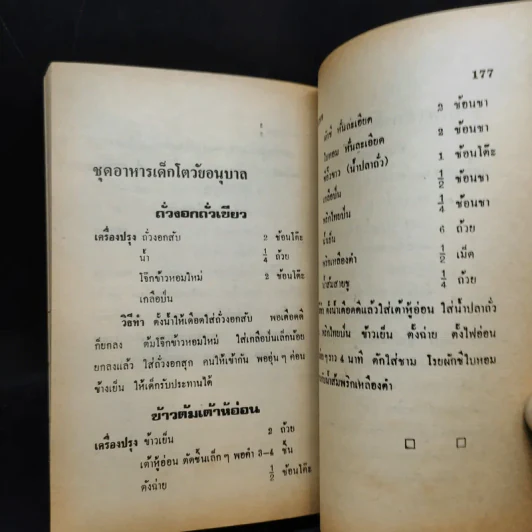 ชุดอาหารเด็กโตวัยอนุบาล
ถั่วงอกถั่วเขียว
เครื่องปรุง ถั่วงอกสับ 2 ช้อนโต๊ะ
น้ำ 1/4 ถ้วย
โจ๊กข้าวหอมใหม่ 2 ช้อนโต๊ะ
เกลือป่น
วิธีทำ ตั้งน้ำให้เดือดใส่ถั่วงอกสับ พอเดือดดี
ก็ยกลง ต้มโจ๊กข้าวหอมใหม่ ใส่เกลือป่นเล็กน้อย
ยกลงแล้ว ใส่ถั่วงอกสุก คนให้เข้ากัน พออุ่นๆ ค่อน
ข้างเย็น ให้เด็กรับประทานได้
ข้าวต้มเต้าหู้อ่อน
เครื่องปรุง ข้าวเย็น 2 ถ้วย
เต้าหู้อ่อน ตัดชิ้นเล็กๆ พอคำ 3-4 ชิ้น
ตังฉ่าย 1/2 ช้อนโต๊ะ
177
หั่นละเอียด 2 ช้อนชา
หั่นละเอียด 2 ช้อนชา
(น้ำปลาถั่ว) 1 ช้อนโต๊ะ
เกลือป่น 1/2 ช้อนชา
พริกไทยป่น 1/4 ช้อนชา
6 ถ้วย
พริกเหลืองตำ 1/2 เม็ด
น้ำส้มสายชู 1/4 ถ้วย
ตั้งน้ำเดือดดีแล้วใส่เต้าหู้อ่อน ใส่น้ำปลาถั่ว
พริกไทยป่น ข้าวเย็น ตั้งฉ่าย ตั้งไฟอ่อน
ๆ ราว 4 นาที ตักใส่ชาม โรยผักชีใบหอม
น้ำส้มพริกเหลืองตำ